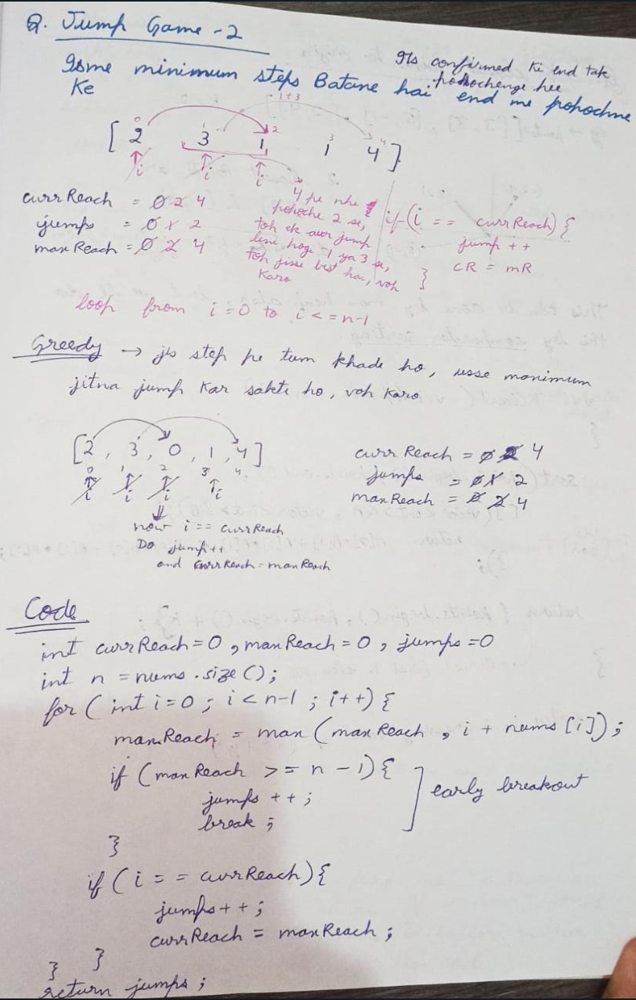 Q. Jump Game - 2
Its confirmed ki end tak
pohochenge hee
Isme minimum steps Batane hai end me pohochne
Ke
1+3
[ 2 3 1 1 4 ]
0 2 3 4
↑i ↑i ↑i
currReach = 0 2 4
jumps = 0 1 2
maxReach = 0 2 4
4 pe nhi
pohoche 2 se,
toh ek aur jump
leni hogi 1 ya 3 se,
toh jisse best hai, voh
karo
if (i == currReach) {
jump ++
cR = mR
}
loop from i=0 to i<=n-1
Greedy → jis step pe tum khade ho, usse maximum
jitna jump kar sakte ho, voh karo
[2, 3, 0, 1, 4]
0 1 2 3 4
↑i ↑i ↑i ↑i
currReach = 0 2 4
jumps = 0 1 2
maxReach = 0 2 4
now i == currReach
Do jump++
and currReach = maxReach
Code
int currReach=0 , maxReach=0 , jumps=0
int n = nums.size();
for ( int i=0 ; i < n-1 ; i++) {
maxReach = max (maxReach , i + nums [i]);
if (maxReach >= n - 1) {
jumps ++ ;
break ;
}
] early breakout
if (i == currReach) {
jumps++ ;
currReach = maxReach ;
} }
return jumps ;